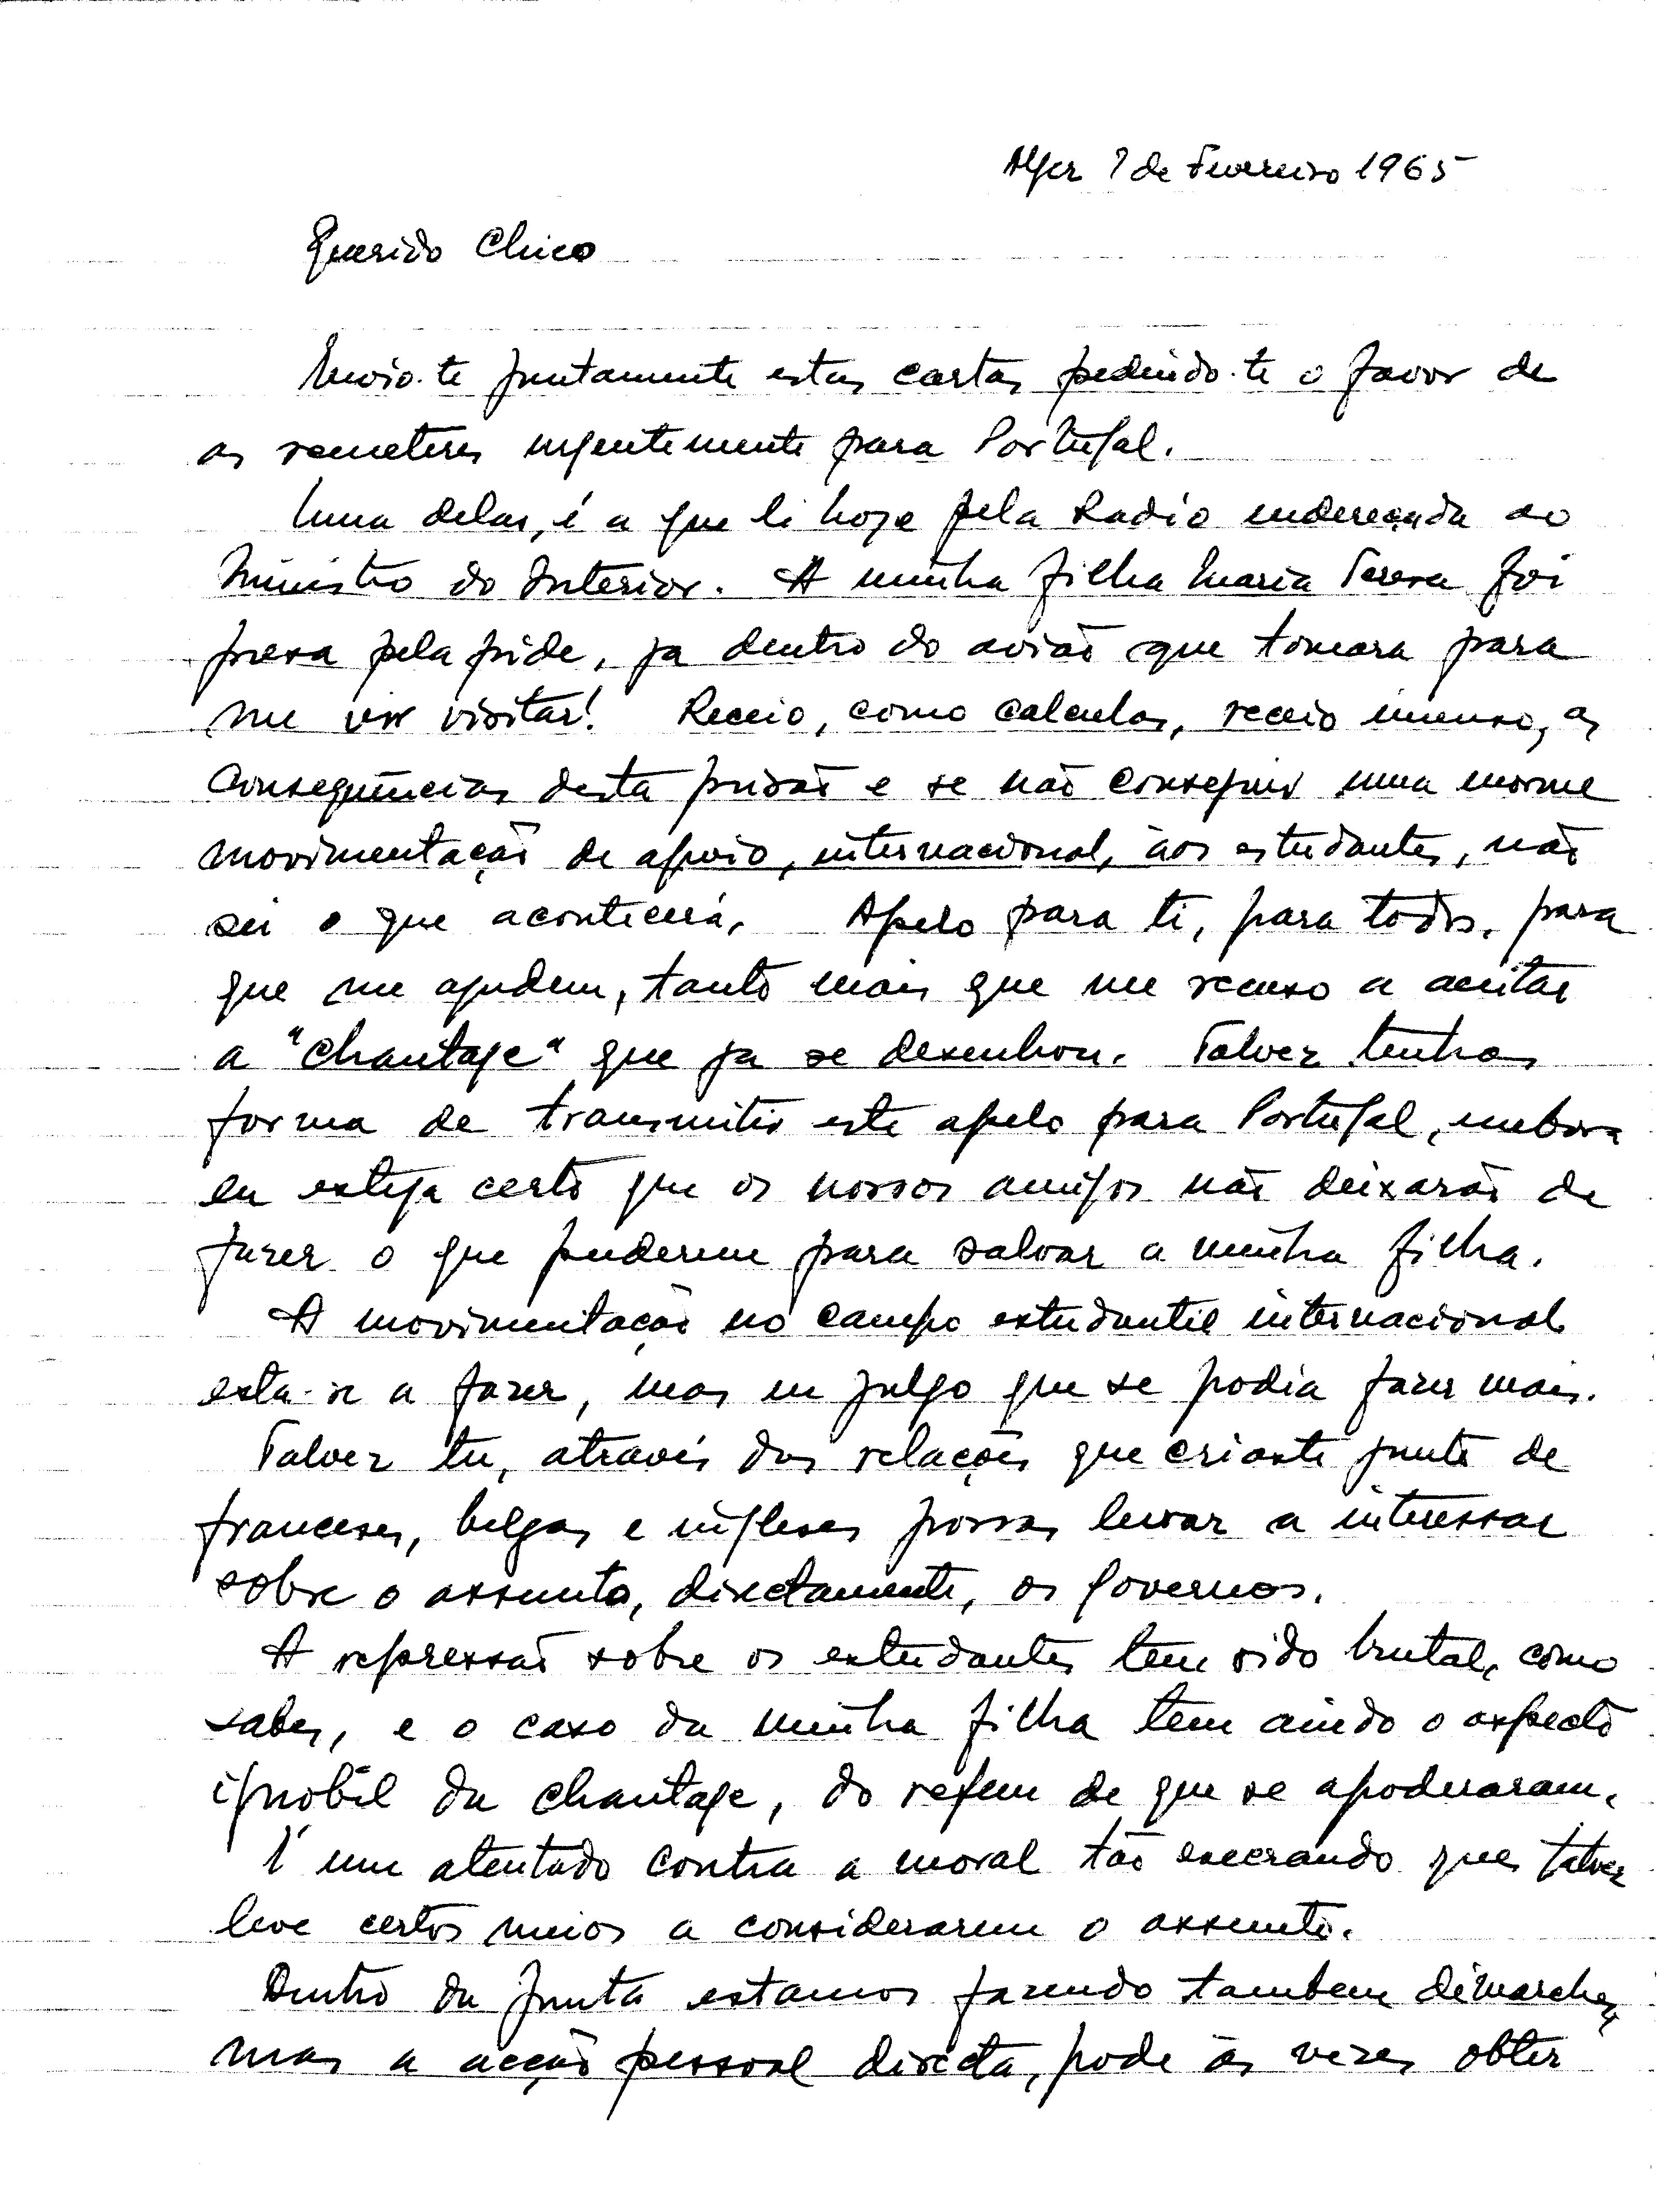 Alger 7 de Fevereiro 1965
Querido Chico
Envio-te juntamente estas cartas pedindo-te o favor de
as remeteres urgentemente para Portugal.
Uma delas, é a que li hoje pela Radio endereçada ao
Ministro do Interior. A minha filha Maria Teresa foi
presa pela pide, ja dentro do avião que tomara para
me vir visitar! Receio, como calculas, receio imenso, as
consequências desta prisão e se não conseguir uma enorme
movimentação de apoio, internacional, aos estudantes, não
sei o que acontecerá. Apelo para ti, para todos, para
que me ajudem, tanto mais que me recuso a aceitar
a "chantage" que ja se desenhou. Talvez tenhas
forma de transmitir este apelo para Portugal, embora
eu esteja certo que os nossos amigos não deixarão de
fazer o que puderem para salvar a minha filha.
A movimentação no campo estudantil internacional
esta-se a fazer, mas eu julgo que se podia fazer mais.
Talvez tu, através das relações que criaste junto de
franceses, belgas e ingleses possas levar a interessar
sobre o assunto, directamente, os governos.
A repressão sobre os estudantes tem sido brutal, como
sabes, e o caso da minha filha tem ainda o aspecto
ignobil da chantage, do refem de que se apoderaram.
É um atentado contra a moral tão execrando que talvez
leve certos meios a considerarem o assunto.
Dentro da Junta estamos fazendo tambem démarches,
mas a acção pessoal directa, pode ás vezes obter